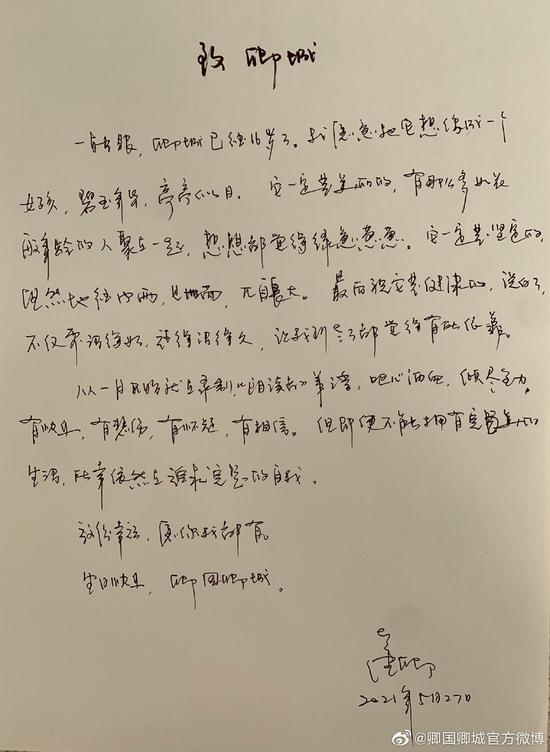 致 卿城
一转眼，卿城已经16岁了。我愿意把它想像成一个
女孩，碧玉年华，亭亭似月。它一定是美的，有那么多如花
般年龄的人聚在一起，想想都觉得绿意葱葱。它一定是坚定的，
坦然地经风雨，见世面，不自大。最后祝它是健康的，说白了，
不仅要活得好，还得活得久，让我到老了都觉得有所依靠。
从一月开始就在录制，呕心沥血，倾尽全力，
有快乐，有悲伤，有怀疑，有相信。但即便不能拥有完美的
生活，所幸依然在追求完整的自我。
这份幸福，愿你我都有。
生日快乐，卿国卿城。
2021年5月27日
@卿国卿城官方微博